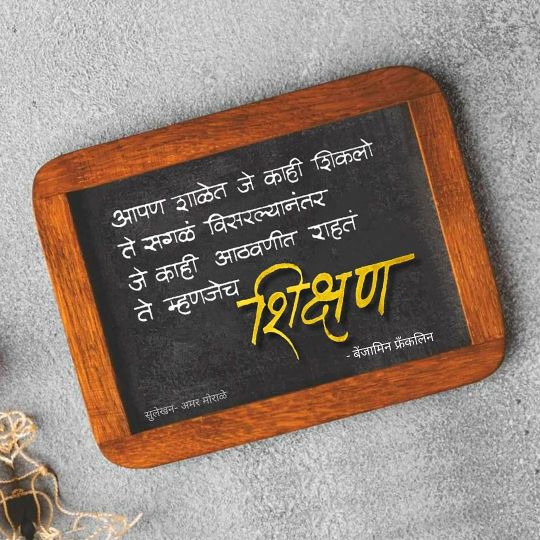 आपण शाळेत जे काही शिकलो
ते सगळं विसरल्यानंतर
जे काही आठवणीत राहतं
ते म्हणजेच शिक्षण
- बेंजामिन फ्रँकलिन
सुलेखन- अमर मोराळे